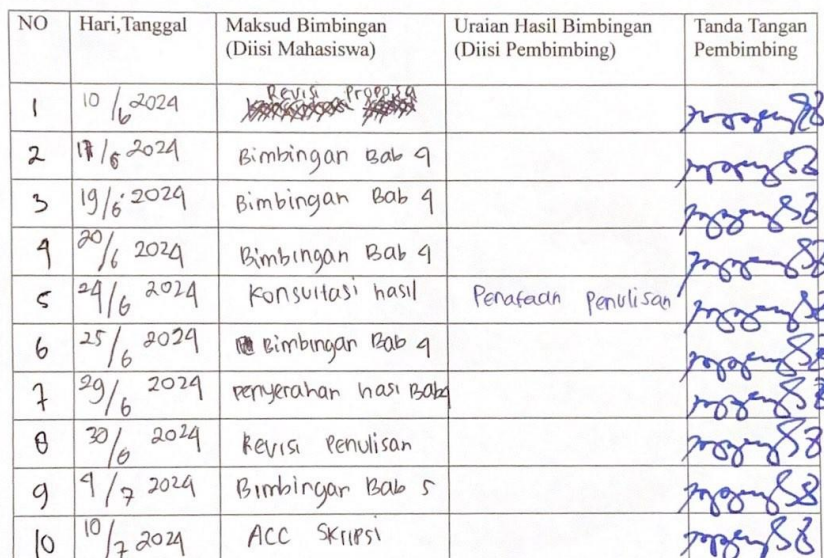 NO Hari,Tanggal Maksud Bimbingan (Diisi Mahasiswa) Uraian Hasil Bimbingan (Diisi Pembimbing) Tanda Tangan Pembimbing
1 10/6 2024 Revisi Proposa
2 17/6 2024 Bimbingan Bab 4
3 19/6 2024 Bimbingan Bab 4
4 20/6 2024 Bimbingan Bab 4
5 24/6 2024 Konsultasi hasil Penataan Penulisan
6 25/6 2024 Bimbingan Bab 4
7 29/6 2024 Penyerahan hasi Bab4
8 30/6 2024 Revisi Penulisan
9 4/7 2024 Bimbingan Bab 5
10 10/7 2024 ACC Skripsi